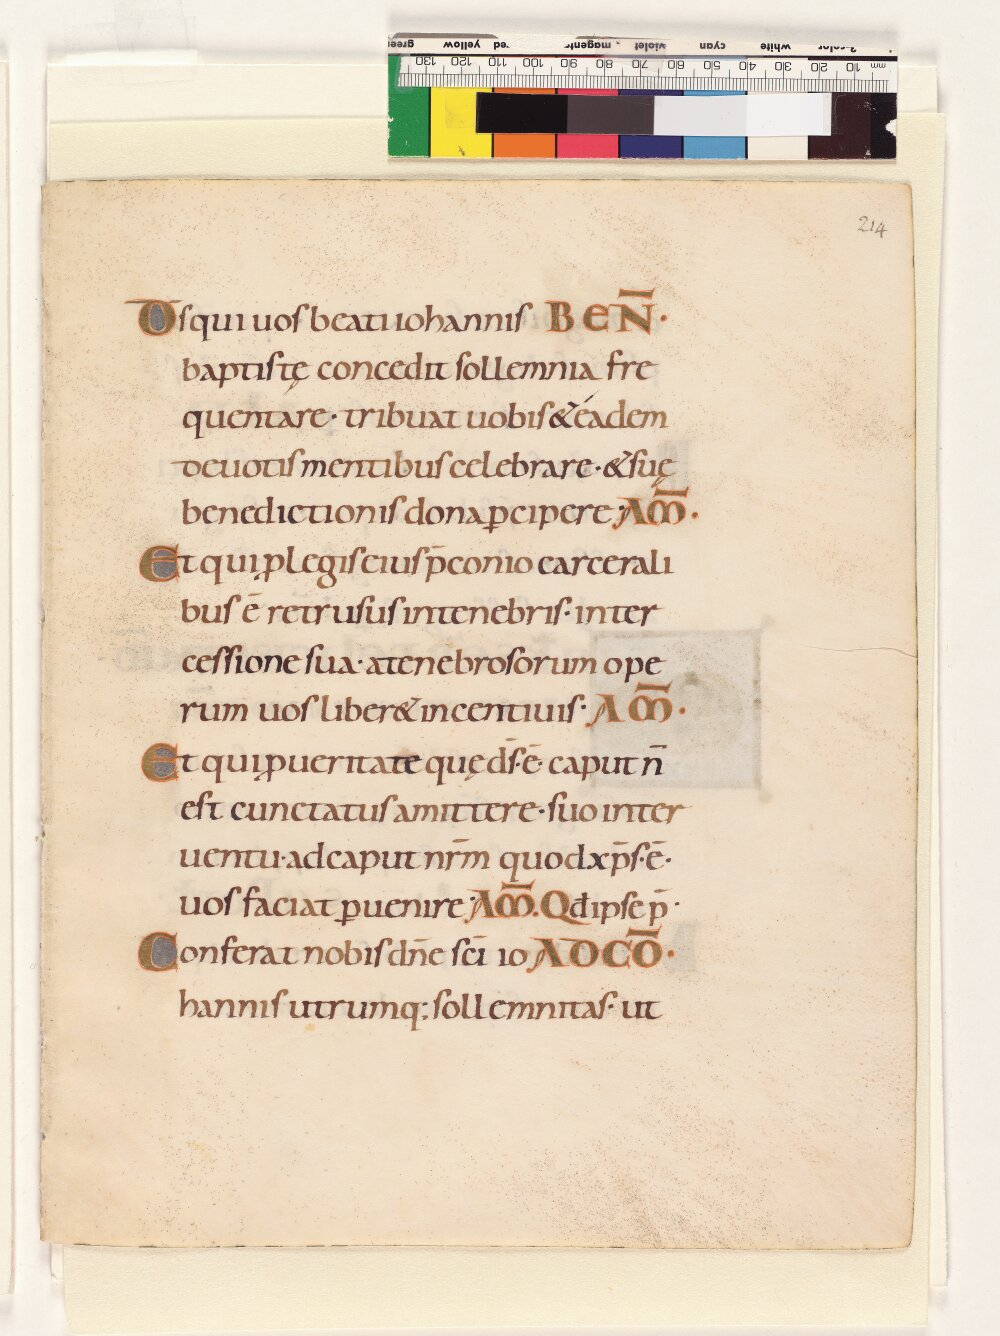 214
Dsqui uos beati iohannis BEN̄·
baptistę concedit sollemnia fre
quentare· tribuat uobis & eadem
deuotis mentibus celebrare· & suę
benedictionis dona ꝑcipere· AM̄·
Et qui ꝓ legis eius p̄conio carcerali
bus ē retrusus in tenebris· inter
cessione sua· a tenebrosorum ope
rum uos liber& incentiuis· AM̄·
Et qui ꝓ ueritate quę d̄s· ē· caput n̄
est cunctatus amittere· suo inter
uentu· ad caput nr̄m quod xp̄s· ē·
uos faciat ꝑuenire· AM̄. Qđ ipse p̄·
Conferat nobis dn̄e sc̄i io ADCŌ·
hannis utrumq; sollemnitas· ut
mm 10 20 30 40 50 60 70 80 90 100 110 120 130
white cyan violet magenta red yellow green